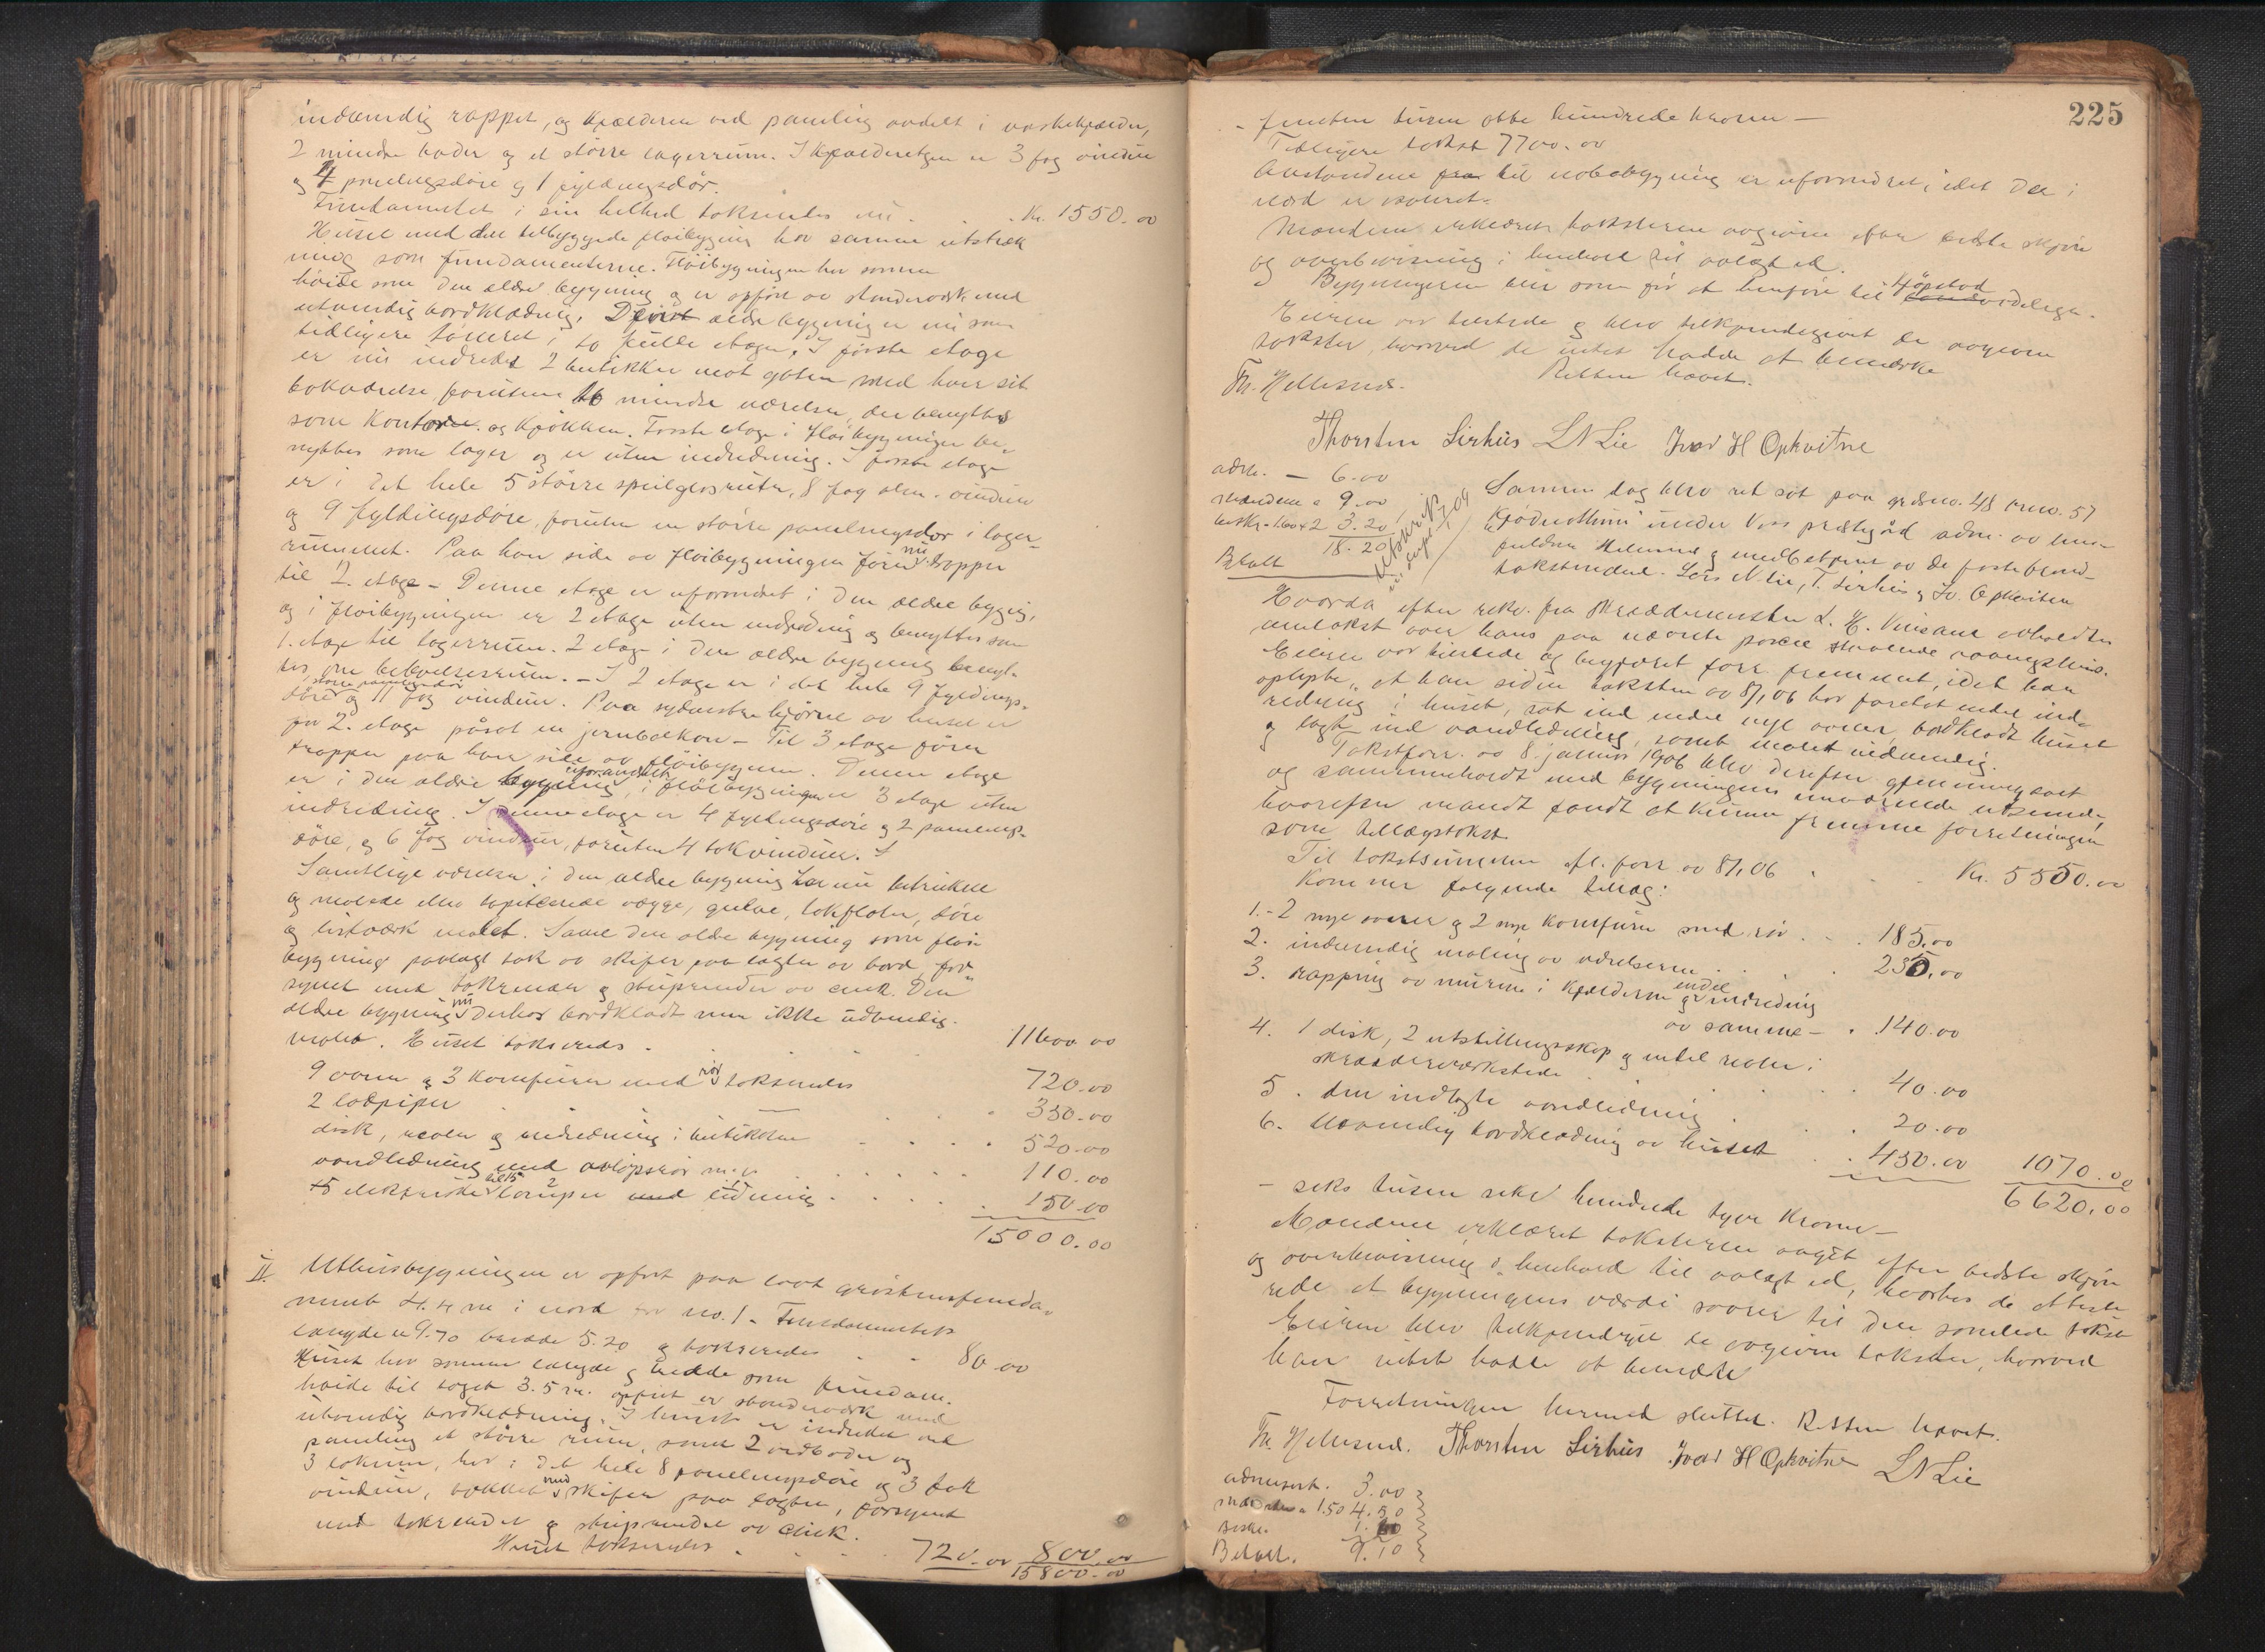 indvendig rappet, og kjælderen ved paneling avdelt i vaskekjælder,
2 mindre boder og et større lagerrum. I kjælderetagen er 3 fag vinduer
og 4 panelingsdøre og 1 fyldingsdør.
Fundamentet i sin helhed takseredes nu . . . Kr. 1550.00
Huset med den tilbyggede fløibygning har samme utstræk
ning som fundamenterne. Fløibygningen har samme
høide som den ældre bygning og er opført av standerverk med
utvendig bordklædning. Den ældre bygning er nu som
tidligere tømret, to fulde etager. I første etage
er nu indredet 2 butikker mot gaten med hver sit
bakværelse foruten 6 mindre værelser, der benyttes
som kontorer og kjøkken. Første etage i fløibygningen be-
nyttes som lager og er uten indredning. I første etage
er i det hele 5 større speilglasruter, 8 fag alm. vinduer
og 9 fyldingsdøre, foruten en større panelingsdør i lager-
rummet. Paa hver side av fløibygningen fører nu trapper
til 2. etage - Denne etage er uforandret i den ældre bygning,
og i fløibygningen er 2 etage uten indredning og benyttes som
1. etage til lagerrum. 2 etage i den ældre bygning benyt-
tes som beboelsesrum. - I 2 etage er i det hele 9 fyldings-
døre større panelingsdør og 11 fag vinduer. Paa sydvestre hjørne av huset er
for 2. etage påsat en jernbalkon - Til 3 etage fører
trapper paa hver side av fløibygningen. Denne etage
er i den ældre bygning uforandret, i fløibygningen er 3 etage uten
indredning. I denne etage er 4 fyldingsdøre og 2 panelings-
døre, og 6 fag vinduer, foruten 4 takvinduer.
Samtlige værelser i den ældre bygning har nu betrukne
og malede eller tapetserede vægge, gulve, takflater, døre
og listverk malet. Saavel den ældre bygning som fløi
bygning paalagt tak av skifer paa lagter av bord, for-
synet med takrender og stuprender av zink. Den
ældre bygning nu derhos bordklædt men ikke udvendig
malet. Huset takseredes . . . 11600.00
9 ovner og 3 komfurer med rør takseredes 720.00
2 ladpiper . . . 350.00
disk, reoler og indredning i butikken . . . 520.00
vandledning med avløpsrør m.v. . . . 110.00
15 elektriske lamper med ledning . . . 150.00
15000.00
II. Uthusbygningen er opført paa lavt gråstensfunda-
ment 4.4 m i nord for no. 1 - Fundamentets
længde er 9.70 bredde 5.20 og takseredes . . 80.00
Huset har samme længde og bredde som fundam.
høide til taget 3.5 m. opført av standerverk med
utvendig bordklædning. I huset er indredet ved
paneling et større rum, samt 2 vedboder og
3 lokum, har i det hele 8 panelingsdøre og 3 fak
vinduer, takket med skifer paa lagter, forsynet
med takrender og stuprender av zink.
Huset takseredes . . . 720.00 800.00
15800.00
225
- femten tusen otte hundrede kroner -
Tidligere takst 7700.00
Avstandene til nabobygning er uforandret, idet den i
nord er isoleret.
Mændene erklærede taksterne avgivne efter bedste skjøn
og overbevisning i henhold til avlagt ed.
Bygningerne blir som før at henføre til 4 opstad
Eieren var tilstede og blev tilkjendegivet de avgivne
takster, hvorved de intet hadde at bemærke
Retten hævet.
Th. Hellesnes.
Thorsten Lirhus L N Lie Ivar H Opkvitne
adm. - 6.00
mændene a 9.00
beskr. - 1.60 x 2 3.20
18.20
Betalt
Samme dag blev ret sat paa grdsno. 48 brno. 57
under Voss prestegård adm. av lens-
fuldm Hellesnes og medbetjent av de faste brand-
takstmænd. Lars N. Lie, T. Lirhus og Iv. Opkvitne
Hvorda efter rekv. fra skræddermester L. H. Vinsand avholdtes
omtakst over hans paa nævnte parcel staaende vaaningshus.
Eieren var tilstede og begjæret forr. fremmet, idet han
oplyste, at han siden taksten av 8/1,06 har foretat endel ind-
redning i huset, sat ind endel nye ovner, bordklædt huset
og lagt ind vandledning, samt malet indvendig.
Takstforr. av 8 januar 1906 blev derefter gjennemgaat
og sammenholdt med bygningens nuværende utseende,
hvorefter mændt fandt at kunne fremme forretningen
som tillægstakst.
Til takstsummen efl. forr. av 8/1,06 . . . Kr. 5550.00
Kommer følgende tillæg:
1. - 2 nye ovner og 2 nye komfurer med rør . . . 185.00
2. indvendig maling av værelserne . . . 255.00
3. rapping av murene i kjælderen og endel indredning
av samme - . 140.00
4. 1 disk, 2 utstillingsskap og endel reoler i
skrædderverkstedet . . . 40.00
5. den indlagte vandledning . . . 20.00
6. Utvendig bordklædning av huset . . . 430.00 1070.00
6620.00
- seks tusen seks hundrede tyve kroner -
Mændene erklæret taksterne avgit efter bedste skjøn
og overbevisning i henhold til avlagt ed, hvorhos de atteste
rede at bygningens værdi svarer til den samlede takst
Eieren blev tilkjendegit de avgivne takster, hvorved
han intet hadde at bemærke
Forretningen hermed sluttet. Retten hævet.
Th. Hellesnes. Thorsten Lirhus Ivar H Opkvitne L N Lie
administ. 3.00
mændene a 1.50 4.50
Beskr. 1.60
Betalt. 9.10